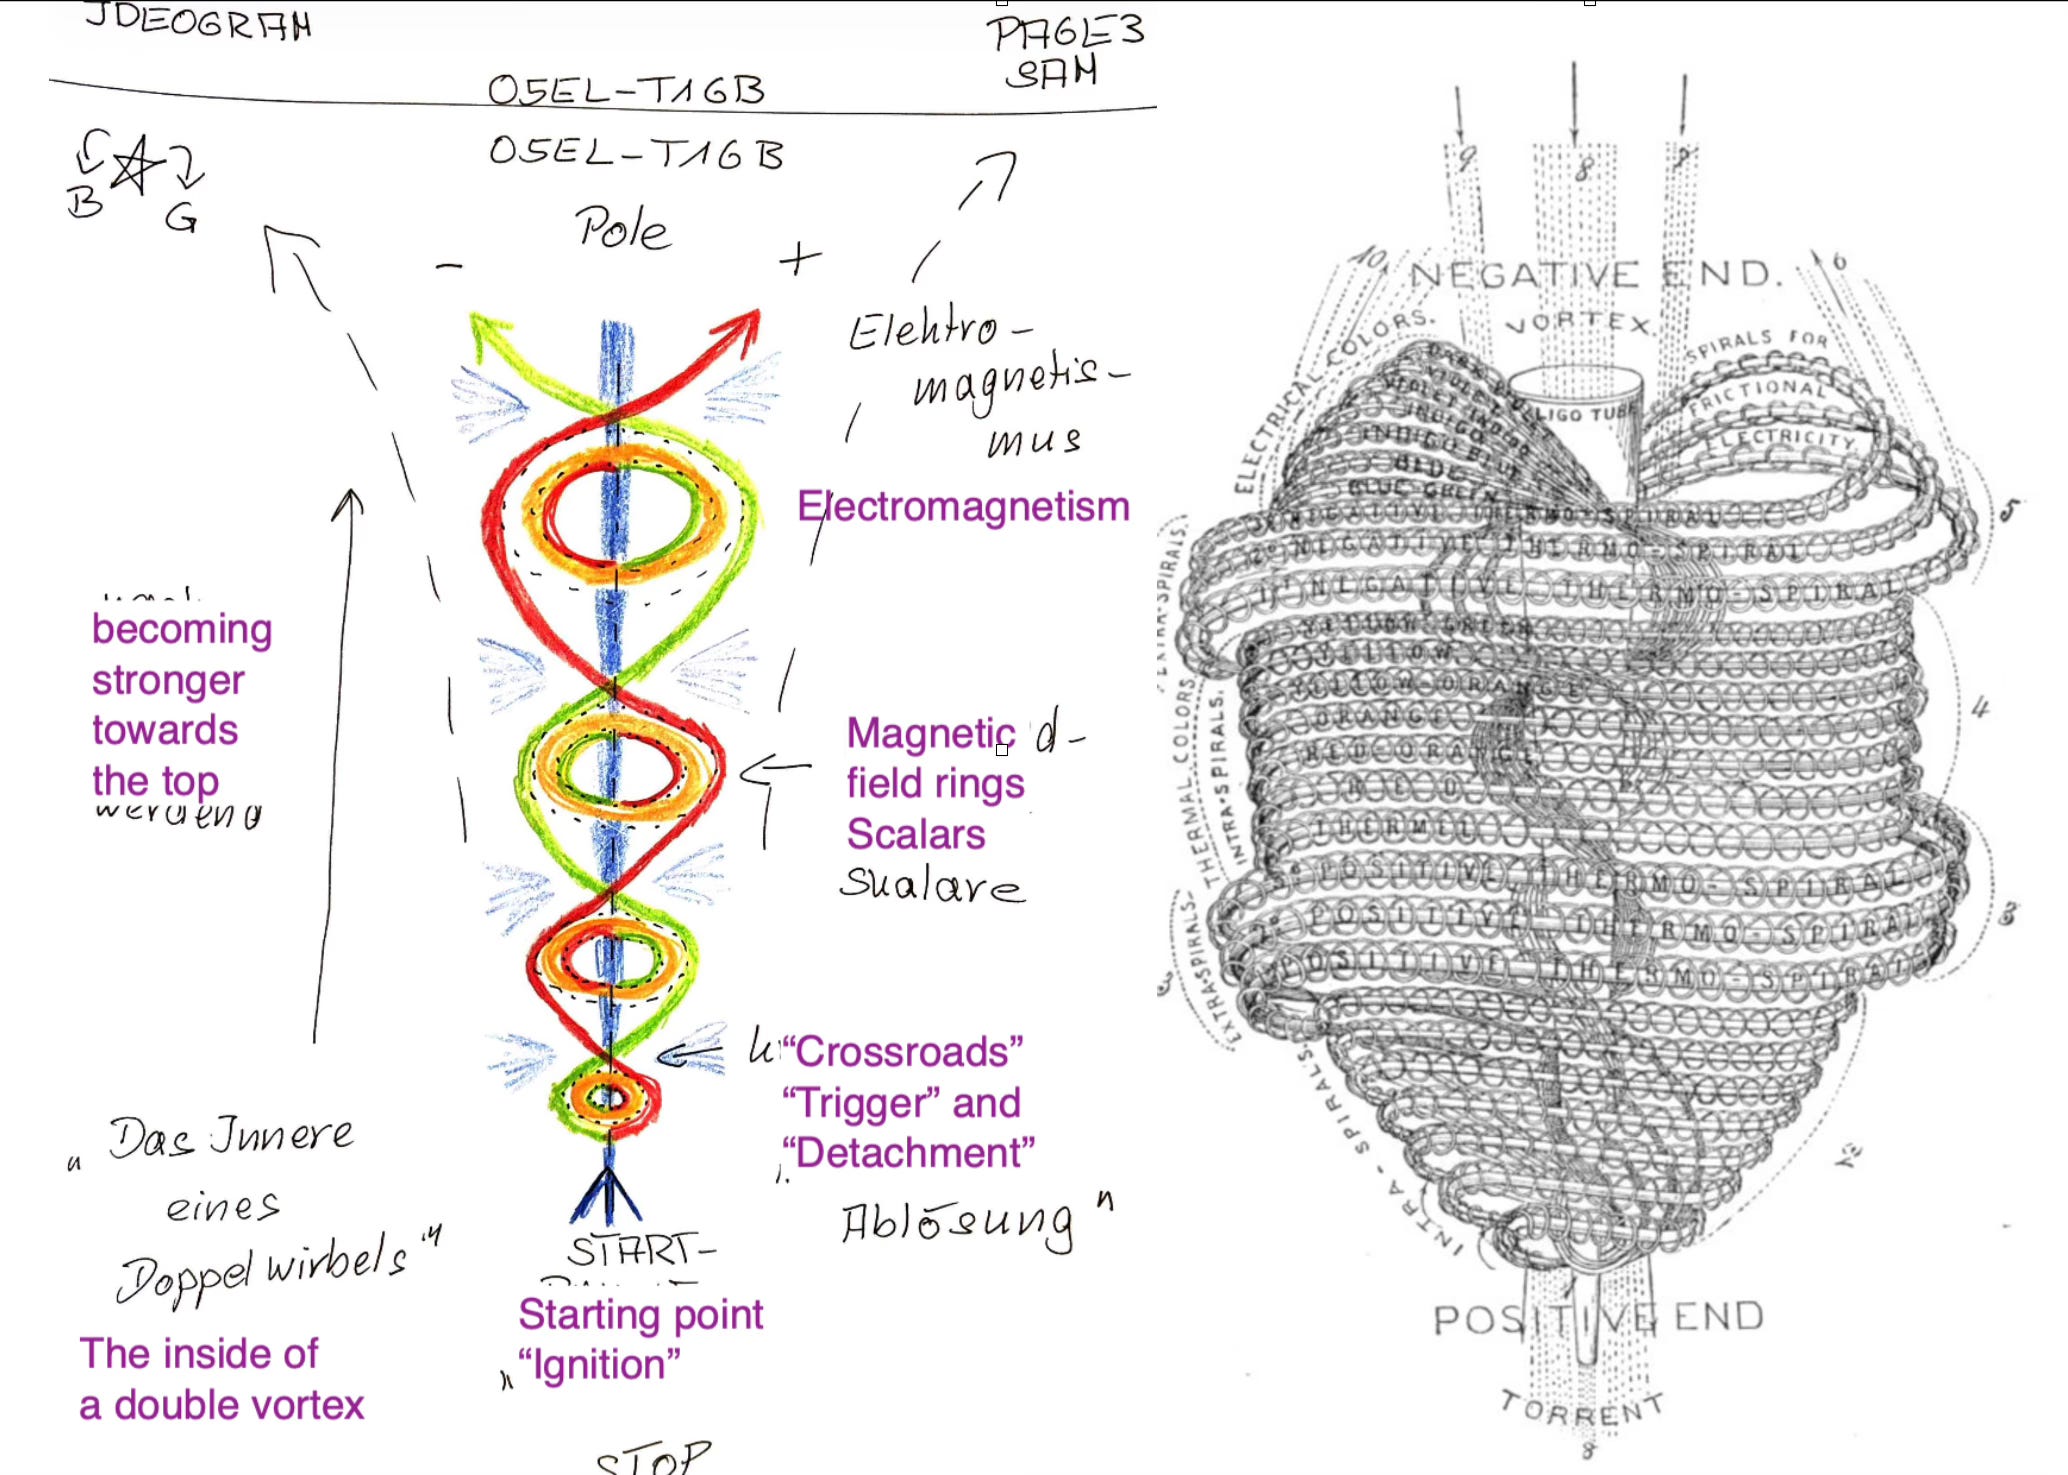 JDEOGRAM
PAGE3
SAM
05EL-T1GB
05EL-T1GB
B
G
Pole
-
+
Elektro-
magnetis-
mus
Electromagnetism
becoming
stronger
towards
the top
werdend
Magnetic d-
field rings
Scalars
Skalare
"Crossroads"
"Trigger" and
"Detachment"
Ablösung"
"Das Innere
eines
Doppelwirbels"
The inside of
a double vortex
START-
Starting point
"Ignition"
STOP
9
8
8
10
6
NEGATIVE END.
VORTEX.
ELECTRICAL COLORS.
SPIRALS FOR
FRICTIONAL
ELECTRICITY.
LIGO TUBE
INDIGO BLUE
BLUE
BLUE GREEN
NEGATIVE THERMO-SPIRAL
2° NEGATIVE THERMO-SPIRAL
1° NEGATIVE THERMO-SPIRAL
YELLOW GREEN
YELLOW
YELLOW-ORANGE
ORANGE
RED-ORANGE
RED
THERMEL
3° POSITIVE THERMO-SPIRAL
2° POSITIVE THERMO-SPIRAL
POSITIVE THERMO-SPIRAL
5
4
3
2
THERMAL COLORS.
INTRA-SPIRALS.
EXTRA SPIRALS.
EXTRA SPIRALS.
INTRA-SPIRALS.
POSITIVE END
TORRENT
8